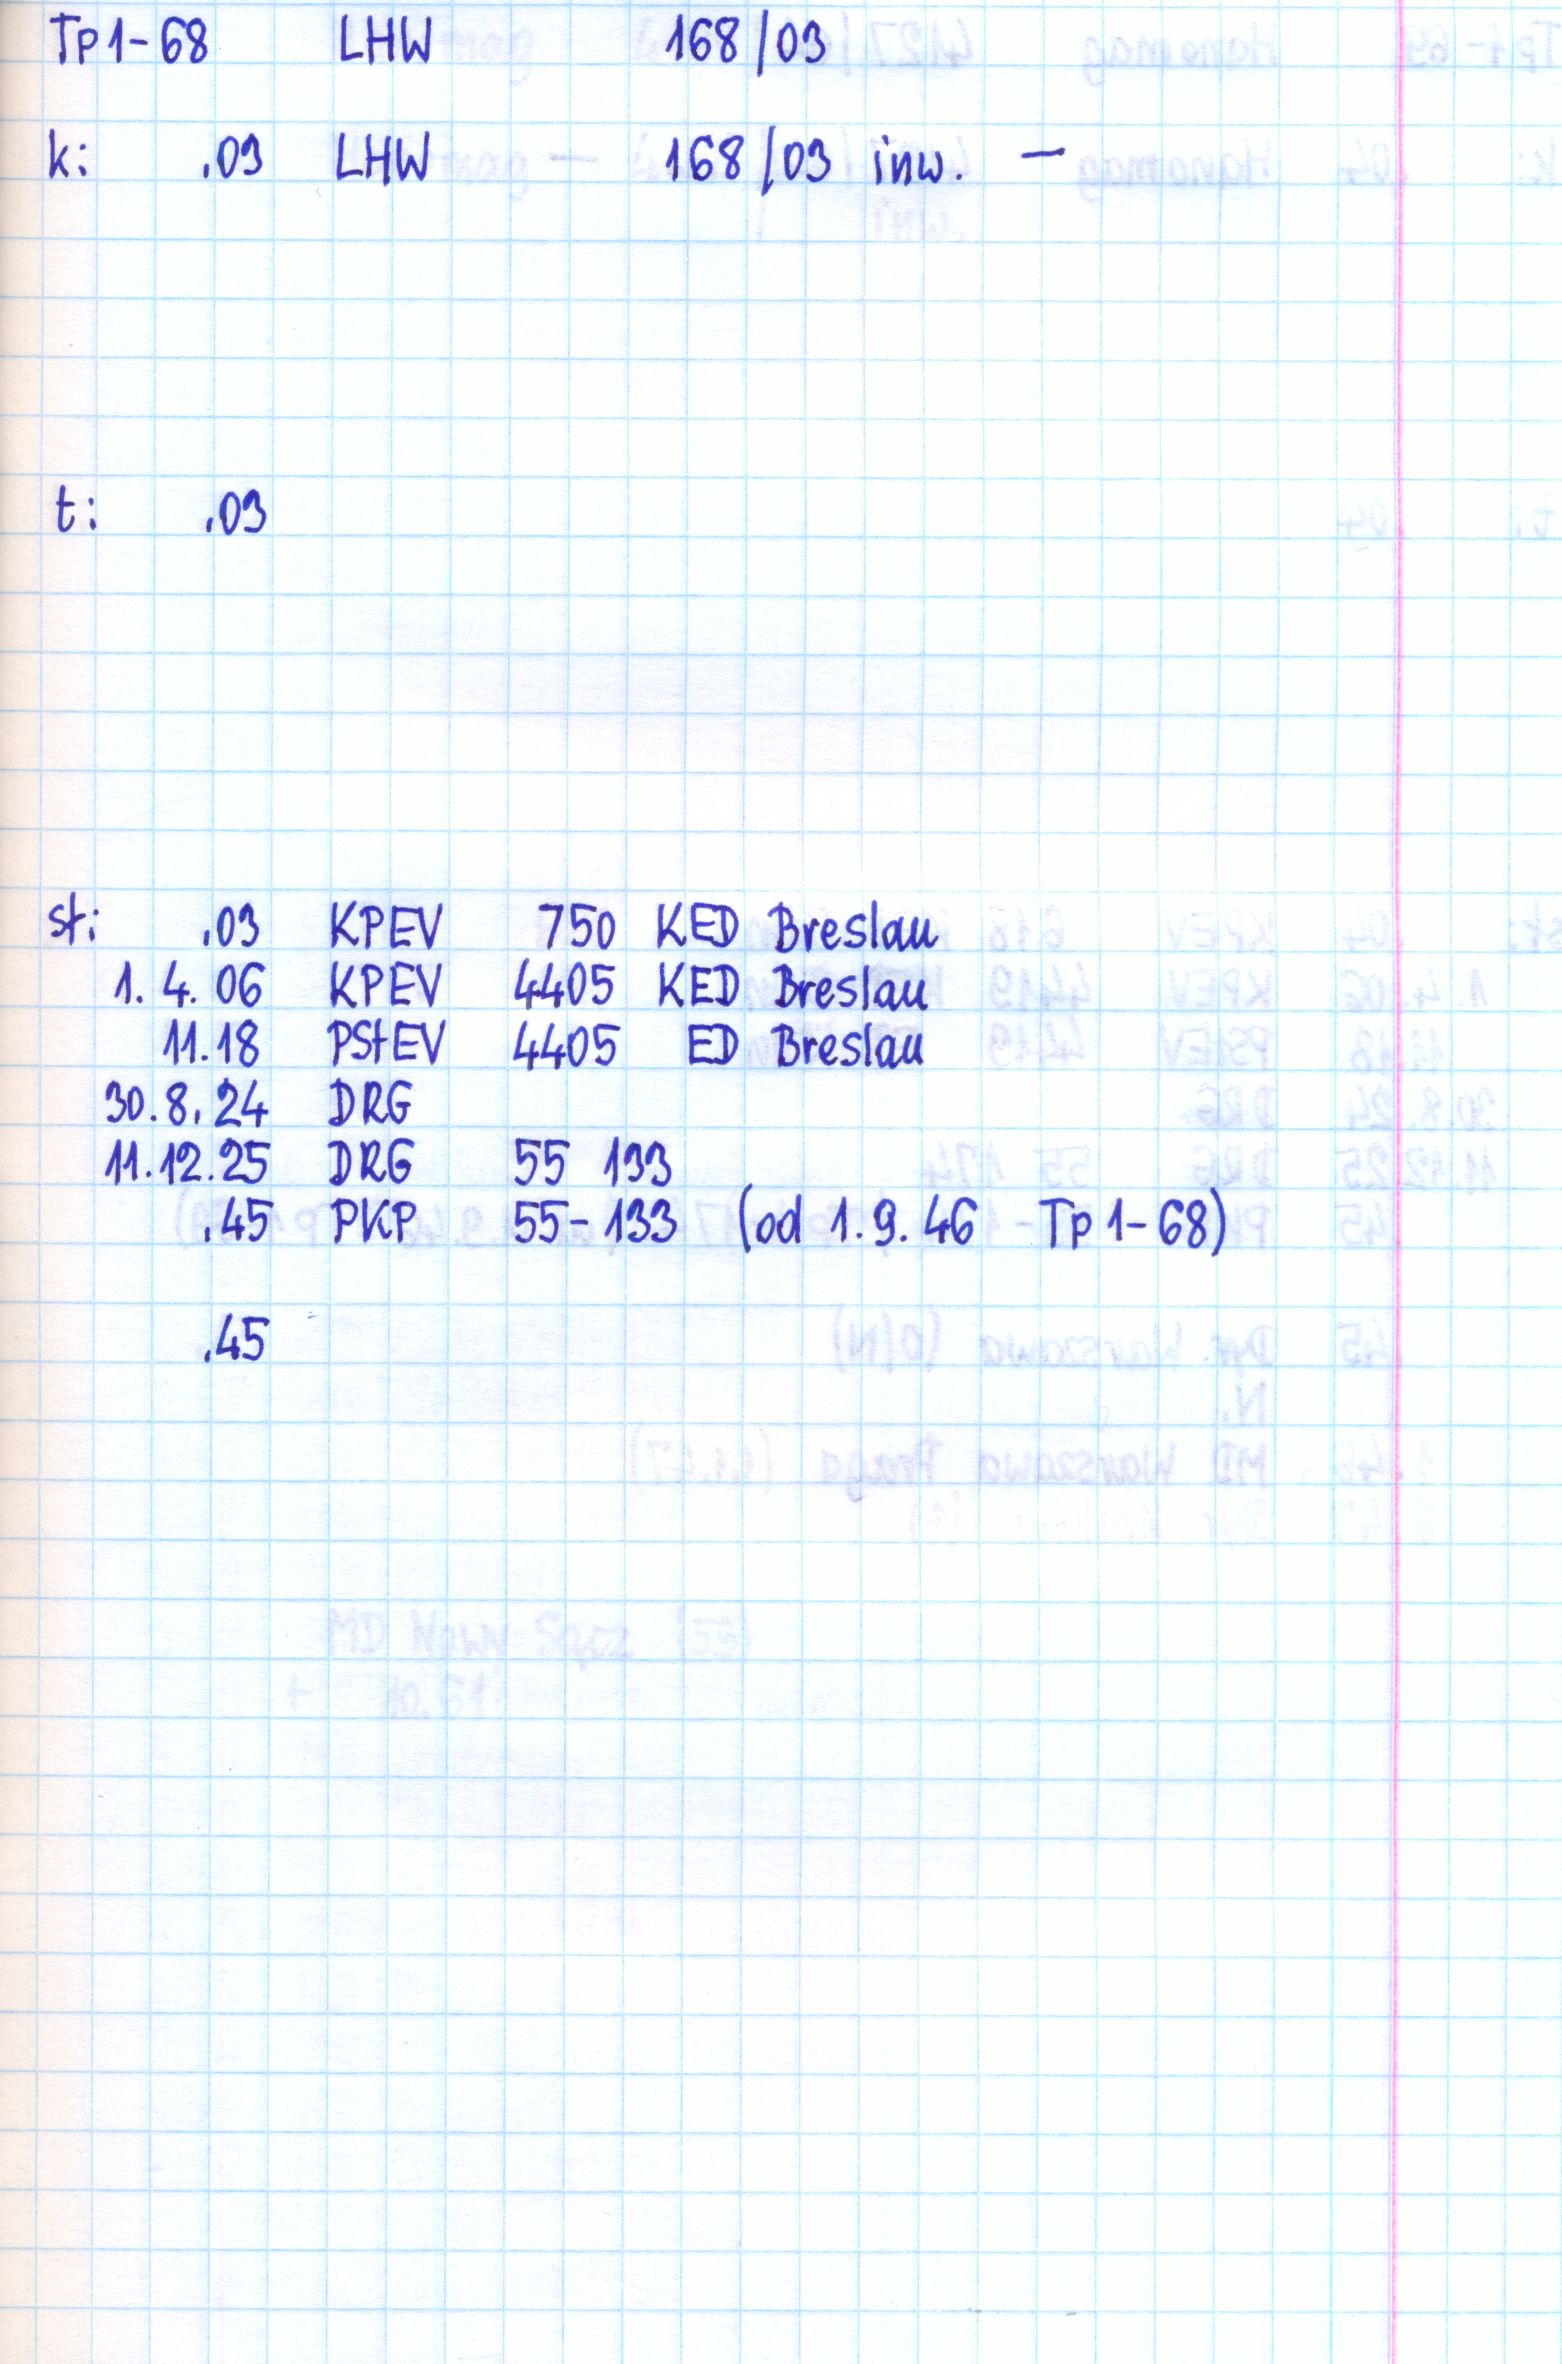 Tp1-68 LHW 168/03
k: .03 LHW 168/03 inw. —
t: .03
st: .03 KPEV 750 KED Breslau
1. 4. 06 KPEV 4405 KED Breslau
11.18 PStEV 4405 ED Breslau
30.8.24 DRG
11.12.25 DRG 55 133
.45 PKP 55-133 (od 1.9.46 Tp1-68)
.45